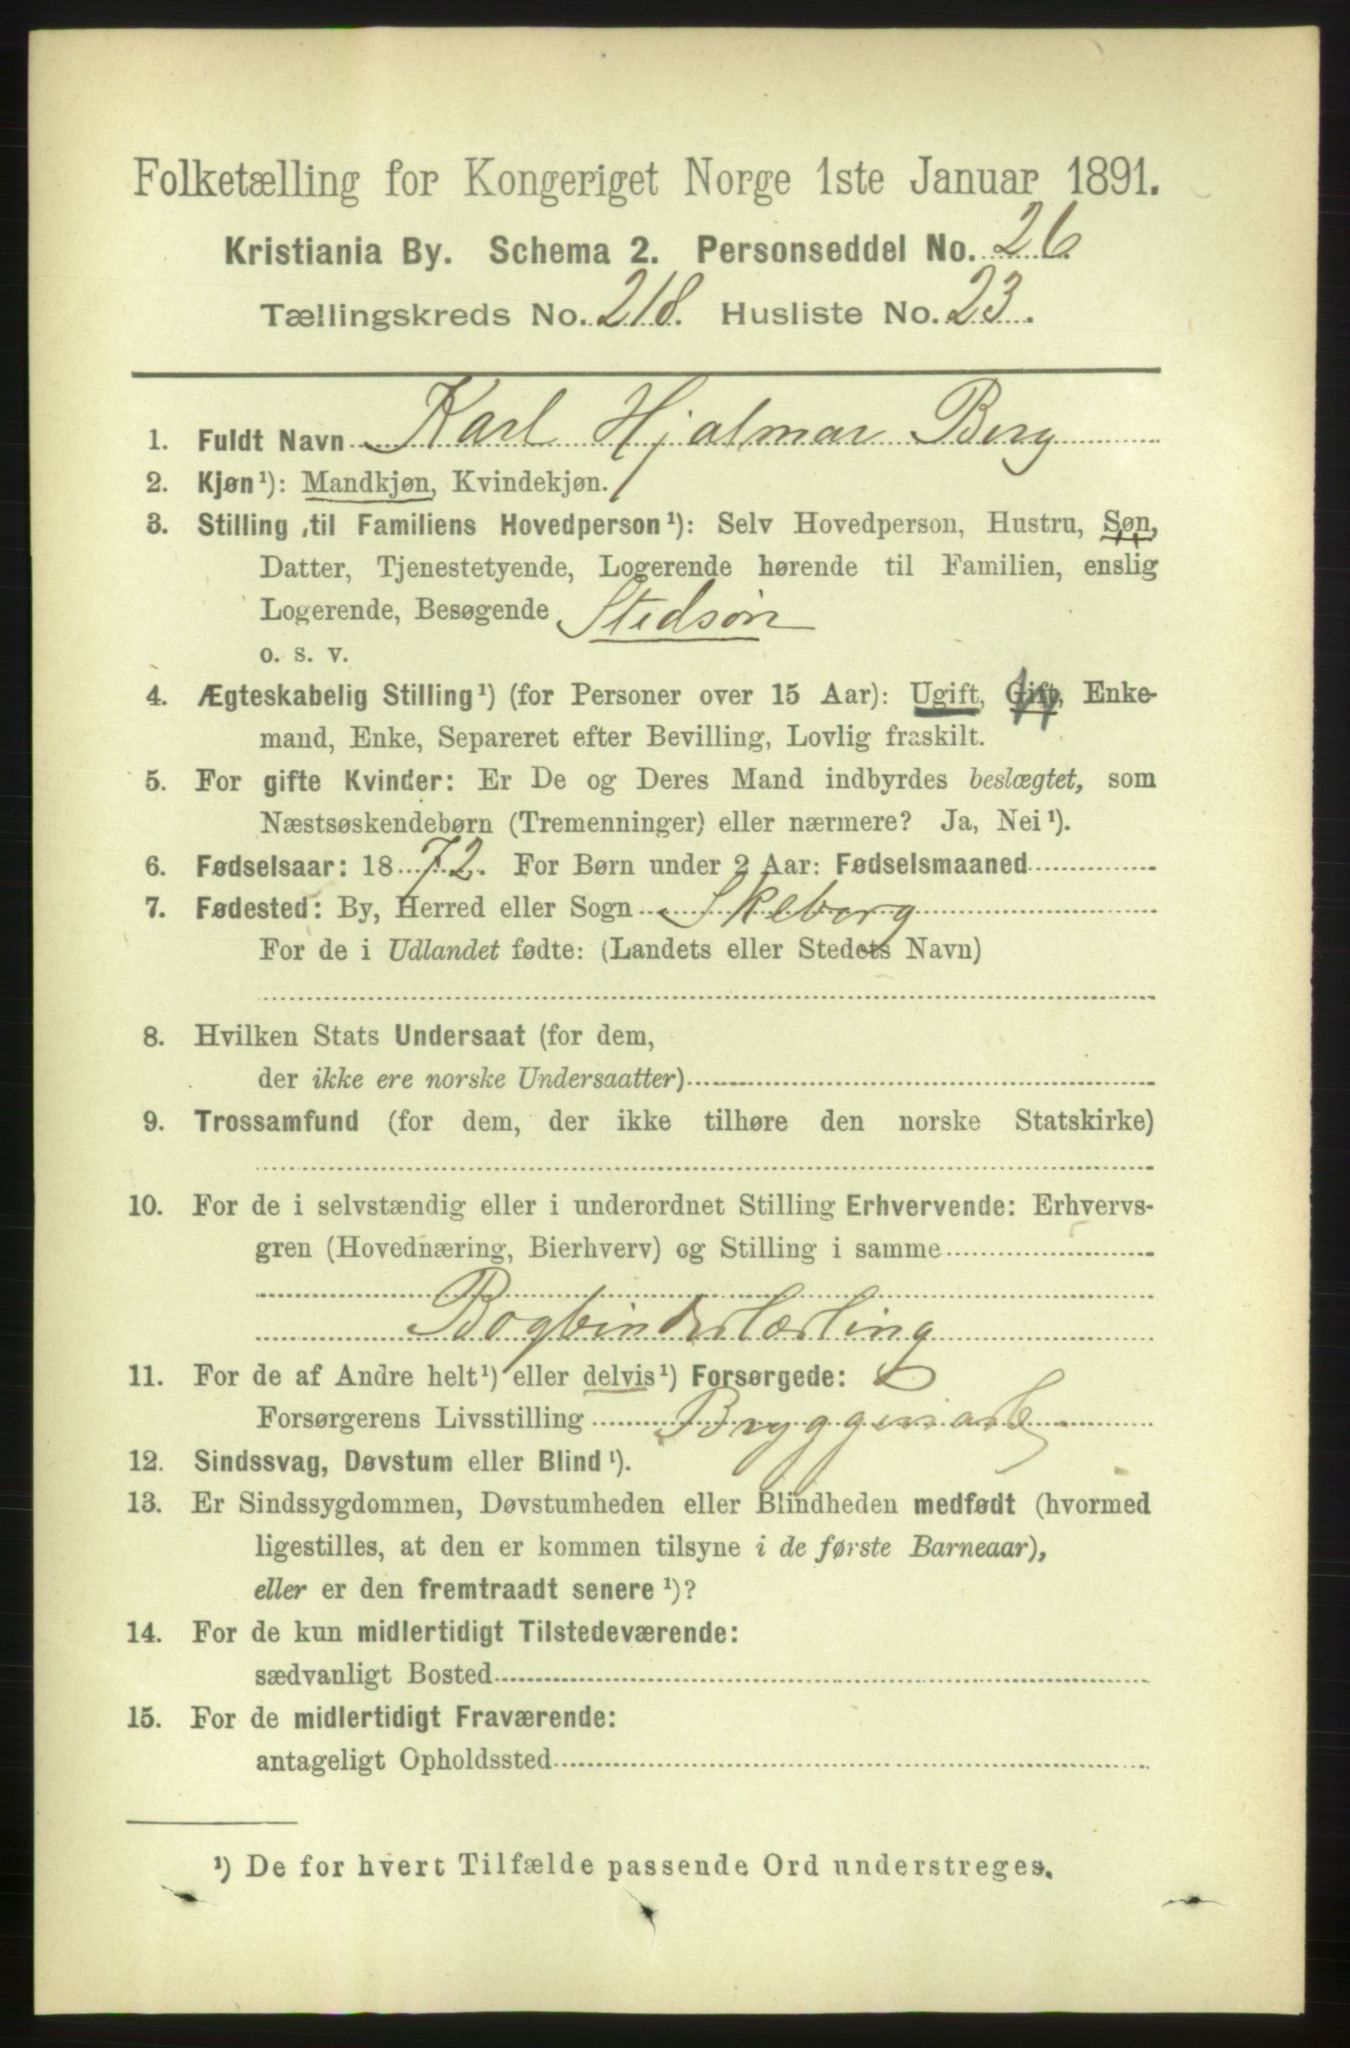 Folketælling for Kongeriget Norge 1ste Januar 1891.
Kristiania By. Schema 2. Personseddel No. 26.
Tællingskreds No. 218. Husliste No. 23.
1. Fuldt Navn Karl Hjalmar Berg
2. Kjøn¹): Mandkjøn, Kvindekjøn.
3. Stilling til Familiens Hovedperson¹): Selv Hovedperson, Hustru, Søn,
Datter, Tjenestetyende, Logerende hørende til Familien, enslig
Logerende, Besøgende Stedsøn
o. s. v.
4. Ægteskabelig Stilling¹) (for Personer over 15 Aar): Ugift, Gift, Enke-
mand, Enke, Separeret efter Bevilling, Lovlig fraskilt.
5. For gifte Kvinder: Er De og Deres Mand indbyrdes beslægtet, som
Næstsøskendebørn (Tremenninger) eller nærmere? Ja, Nei¹).
6. Fødselsaar: 1872. For Børn under 2 Aar: Fødselsmaaned
7. Fødested: By, Herred eller Sogn Skeborg
For de i Udlandet fødte: (Landets eller Stedets Navn)
8. Hvilken Stats Undersaat (for dem,
der ikke ere norske Undersaatter)
9. Trossamfund (for dem, der ikke tilhøre den norske Statskirke)
10. For de i selvstændig eller i underordnet Stilling Erhvervende: Erhvervs-
gren (Hovednæring, Bierhverv) og Stilling i samme
Bogbinderlærling
11. For de af Andre helt¹) eller delvis¹) Forsørgede:
Forsørgerens Livsstilling Bryggeriarb
12. Sindssvag, Døvstum eller Blind¹).
13. Er Sindssygdommen, Døvstumheden eller Blindheden medfødt (hvormed
ligestilles, at den er kommen tilsyne i de første Barneaar),
eller er den fremtraadt senere¹)?
14. For de kun midlertidigt Tilstedeværende:
sædvanligt Bosted
15. For de midlertidigt Fraværende:
antageligt Opholdssted
¹) De for hvert Tilfælde passende Ord understreges.